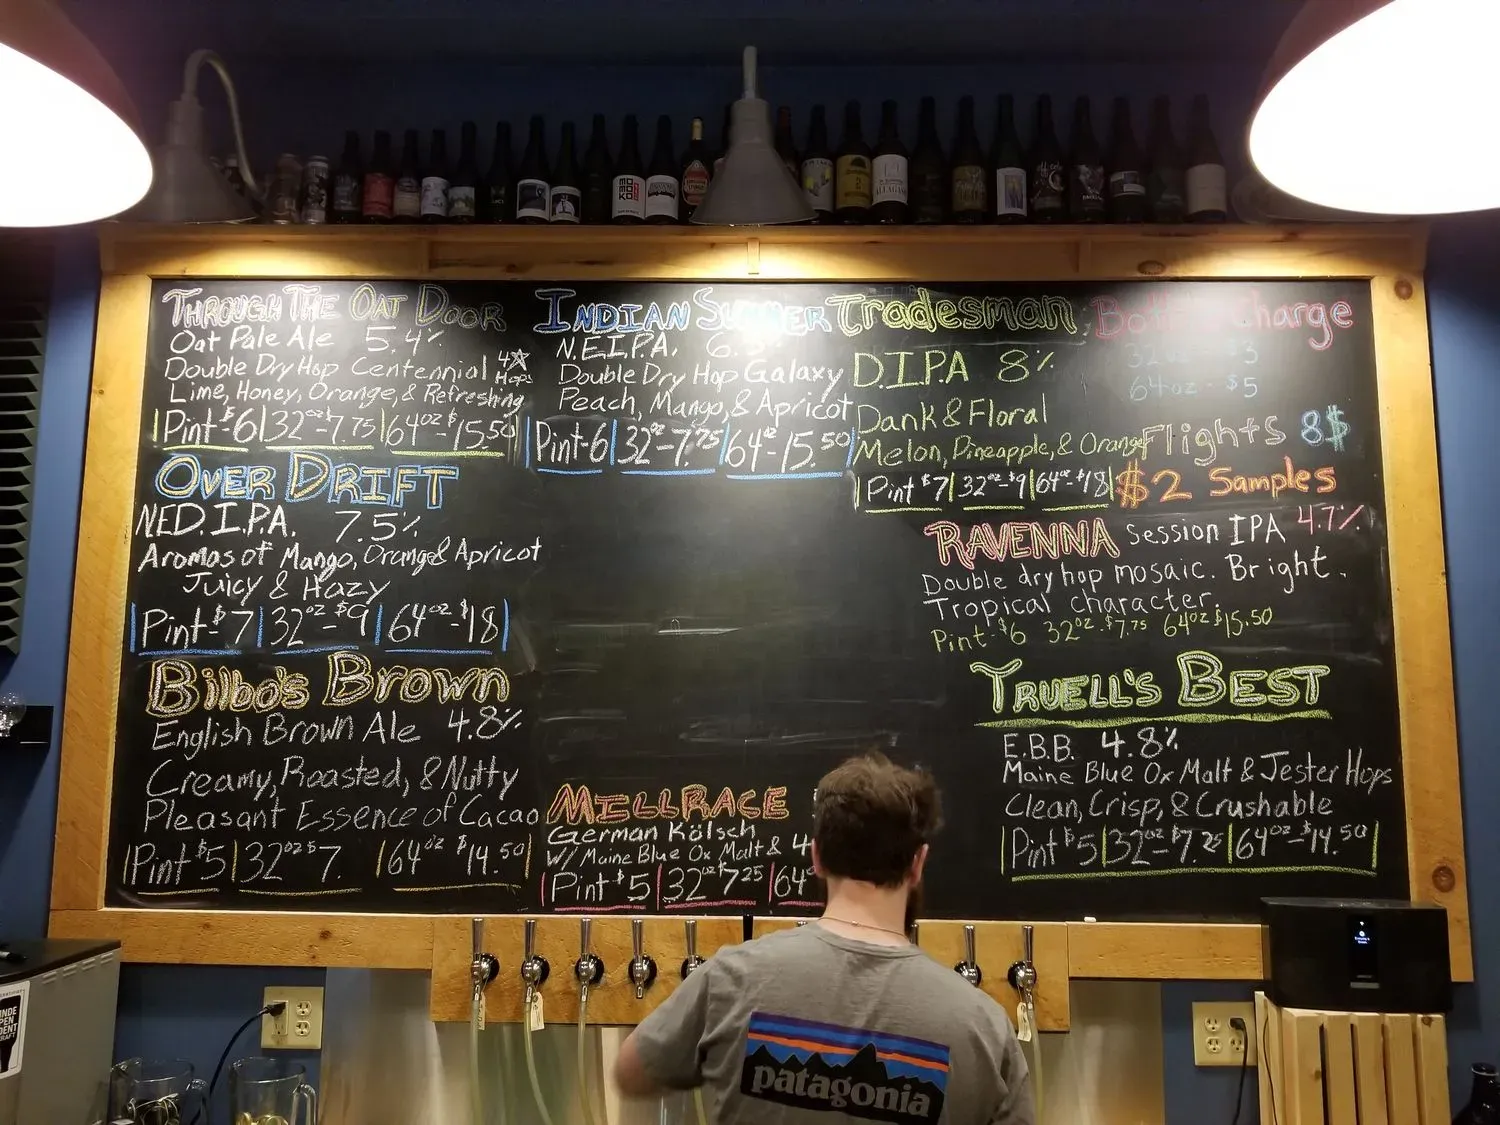 THROUGH THE OAT DOOR
Oat Pale Ale 5.4%
Double Dry Hop Centennial
Hops
Lime, Honey, Orange, & Refreshing
Pint-$6 32oz-7.75 64oz-$15.50
OVER DRIFT
NE D.I.P.A. 7.5%
Aromas of Mango, Orange & Apricot
Juicy & Hazy
Pint-$7 32oz-$9 64oz-$18
Bilbo's Brown
English Brown Ale 4.8%
Creamy, Roasted, & Nutty
Pleasant Essence of Cacao
Pint $5 32oz $7. 64oz $14.50
INDIAN SUMMER
N.E.I.P.A.
Double Dry Hop Galaxy
Peach, Mango, & Apricot
Pint-6 32oz-7.75 64oz-15.50
MILLRACE
German Kölsch
W/ Maine Blue Ox Malt & 4
Pint $5 32oz $7.25 64
Tradesman
D.I.P.A 8%
Dank & Floral
Melon, Pineapple, & Orange
Pint $7 32oz-$9 64oz-$18
Charge
32oz - $3
64oz - $5
Flights 8$
$2 Samples
RAVENNA Session IPA 4.7%
Double dry hop mosaic. Bright.
Tropical character.
Pint-$6 32oz-$7.75 64oz $15.50
TRUELL'S BEST
E.B.B. 4.8%
Maine Blue Ox Malt & Jester Hops
Clean, Crisp, & Crushable
Pint $5 32oz-$7.25 64oz-$14.50
patagonia